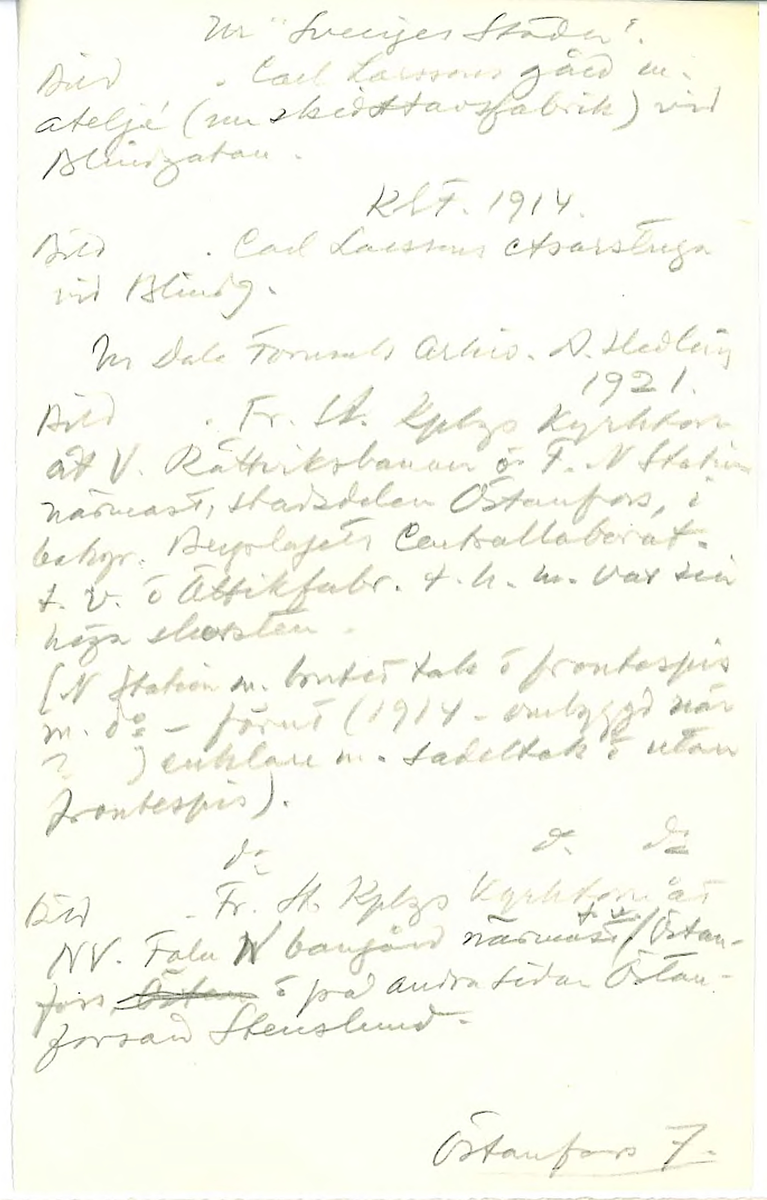 Ur "Sveriges Städer".
Bild . Carl Larssons gård m.
ateljé (nu skidstavsfabrik) vid
Blindgatan.
KLF. 1914.
Bild . Carl Larssons
vid Blindg.
Ur Dala Fornsals Arkiv. D. Hedling
1921.
Bild . Fr. St. Kplgs Kyrktorn
åt V. Rättviksbanan o. F. N Station
närmast, stadsdelen Östanfors, i
bakgr. Bergslagets Centrallaborat.
t. v. o Ättikfabr. t. h. m. var sin
höga skorsten.
[N Station m. brutet tak o frontespis
m. do - förut (1914 - ombyggd när
? ) enklare m. sadeltak o utan
frontespis).
do do do
Bild . Fr. St. Kplgs Kyrktorn åt
NV. Falu N bangård närmast, t. v. Östan-
fors o på andra sidan Östan-
forsån Stenslund.
Östanfors 7.